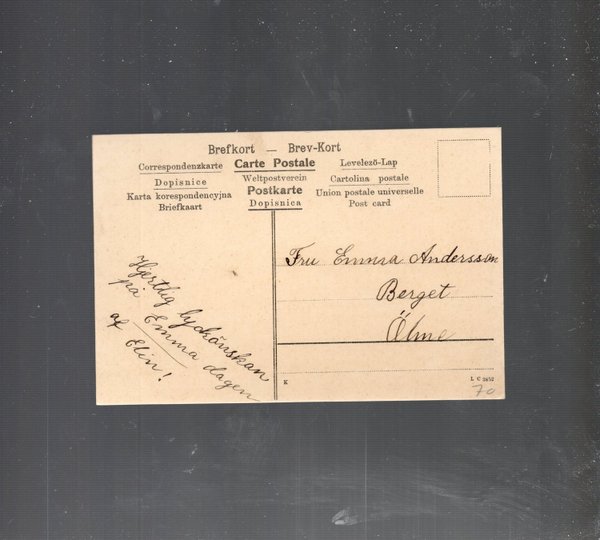 Brefkort — Brev-Kort
Correspondenzkarte Carte Postale Levelezö-Lap
Dopisnice Weltpostverein Cartolina postale
Karta korespondencyjna Postkarte Union postale universelle
Briefkaart Dopisnica Post card
Hjertlig lyckönskan
på Emma dagen
af Elin!
Fru Emma Andersson
Berget
Ölme
K
L C 2852
70